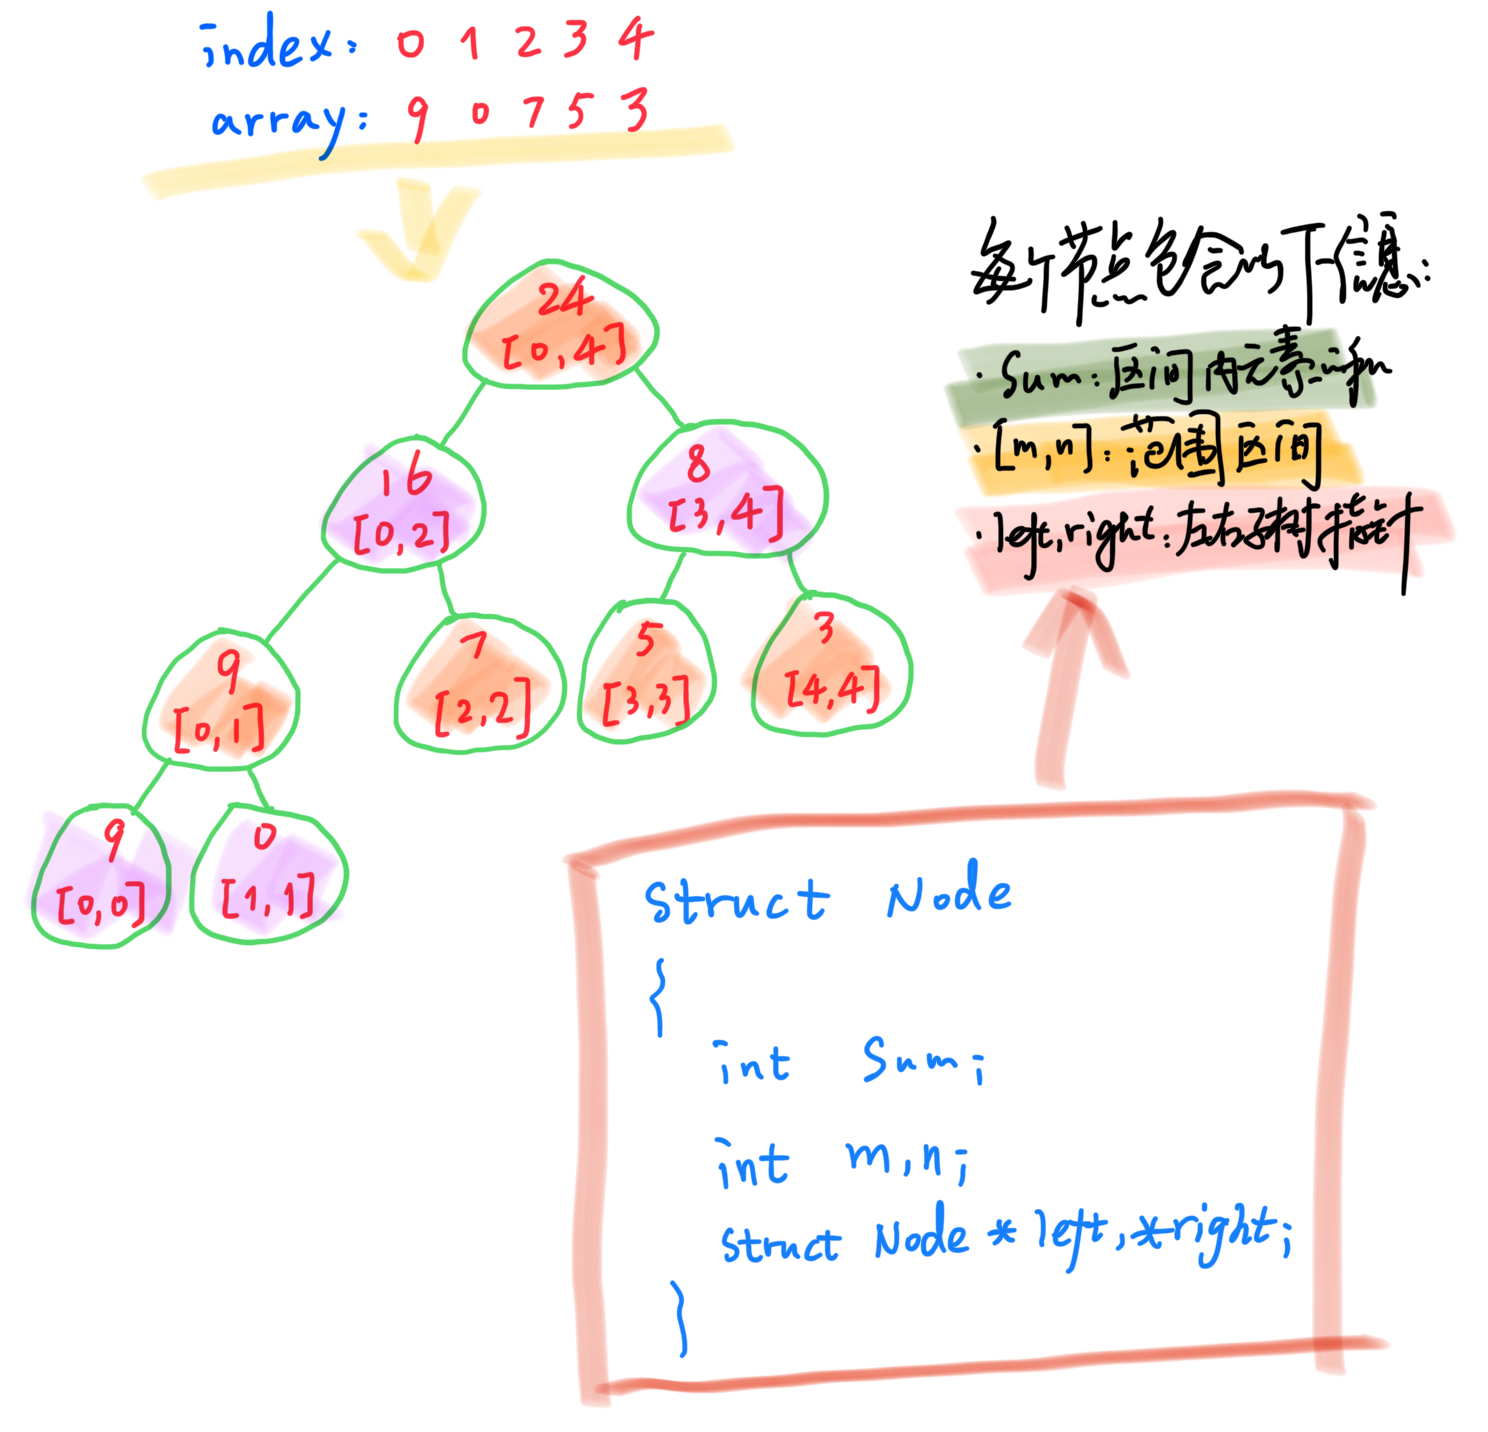 index: 0 1 2 3 4
array: 9 0 7 5 3
24
[0,4]
16
[0,2]
8
[3,4]
9
[0,1]
7
[2,2]
5
[3,3]
3
[4,4]
9
[0,0]
0
[1,1]
每个节点包含以下信息:
· Sum: 区间内元素之和
· [m,n]: 范围区间
· left,right: 左右子树指针
Struct Node
{
int Sum;
int m,n;
Struct Node * left,*right;
}